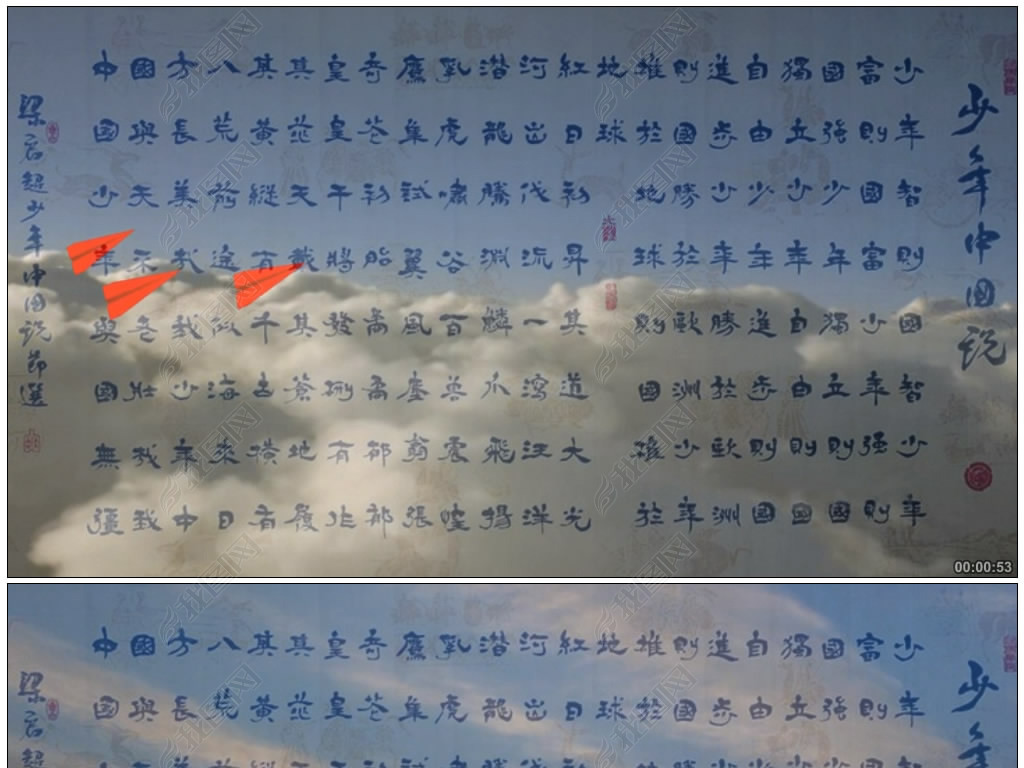 少年中國說
少年智則國智少年
富則國富少年強則
國強少年獨立則國
獨立少年自由則國
自由少年進步則國
進步少年勝於歐洲
則國勝於歐洲少年
雄於地球則國雄於
地球
紅日初昇其道大光
河出伏流一瀉汪洋
潛龍騰淵鱗爪飛揚
乳虎嘯谷百獸震惶
鷹隼試翼風塵翕張
奇花初胎矞矞
皇皇干將發硎有作
其芒天戴其蒼地履
其黃縱有千古橫有
八荒前途似海來日
方長美哉我少年中
國與天不老壯哉我
中國少年與國無疆
梁啟超少年中國說節選
00:00:53
少年
少年
富則
國強
獨立
自由
進步
則國
雄於
地球
紅日
河出
潛龍
乳虎
鷹隼
奇花
皇皇
其芒
其黃
八荒
方長
國與
中國
梁啟超